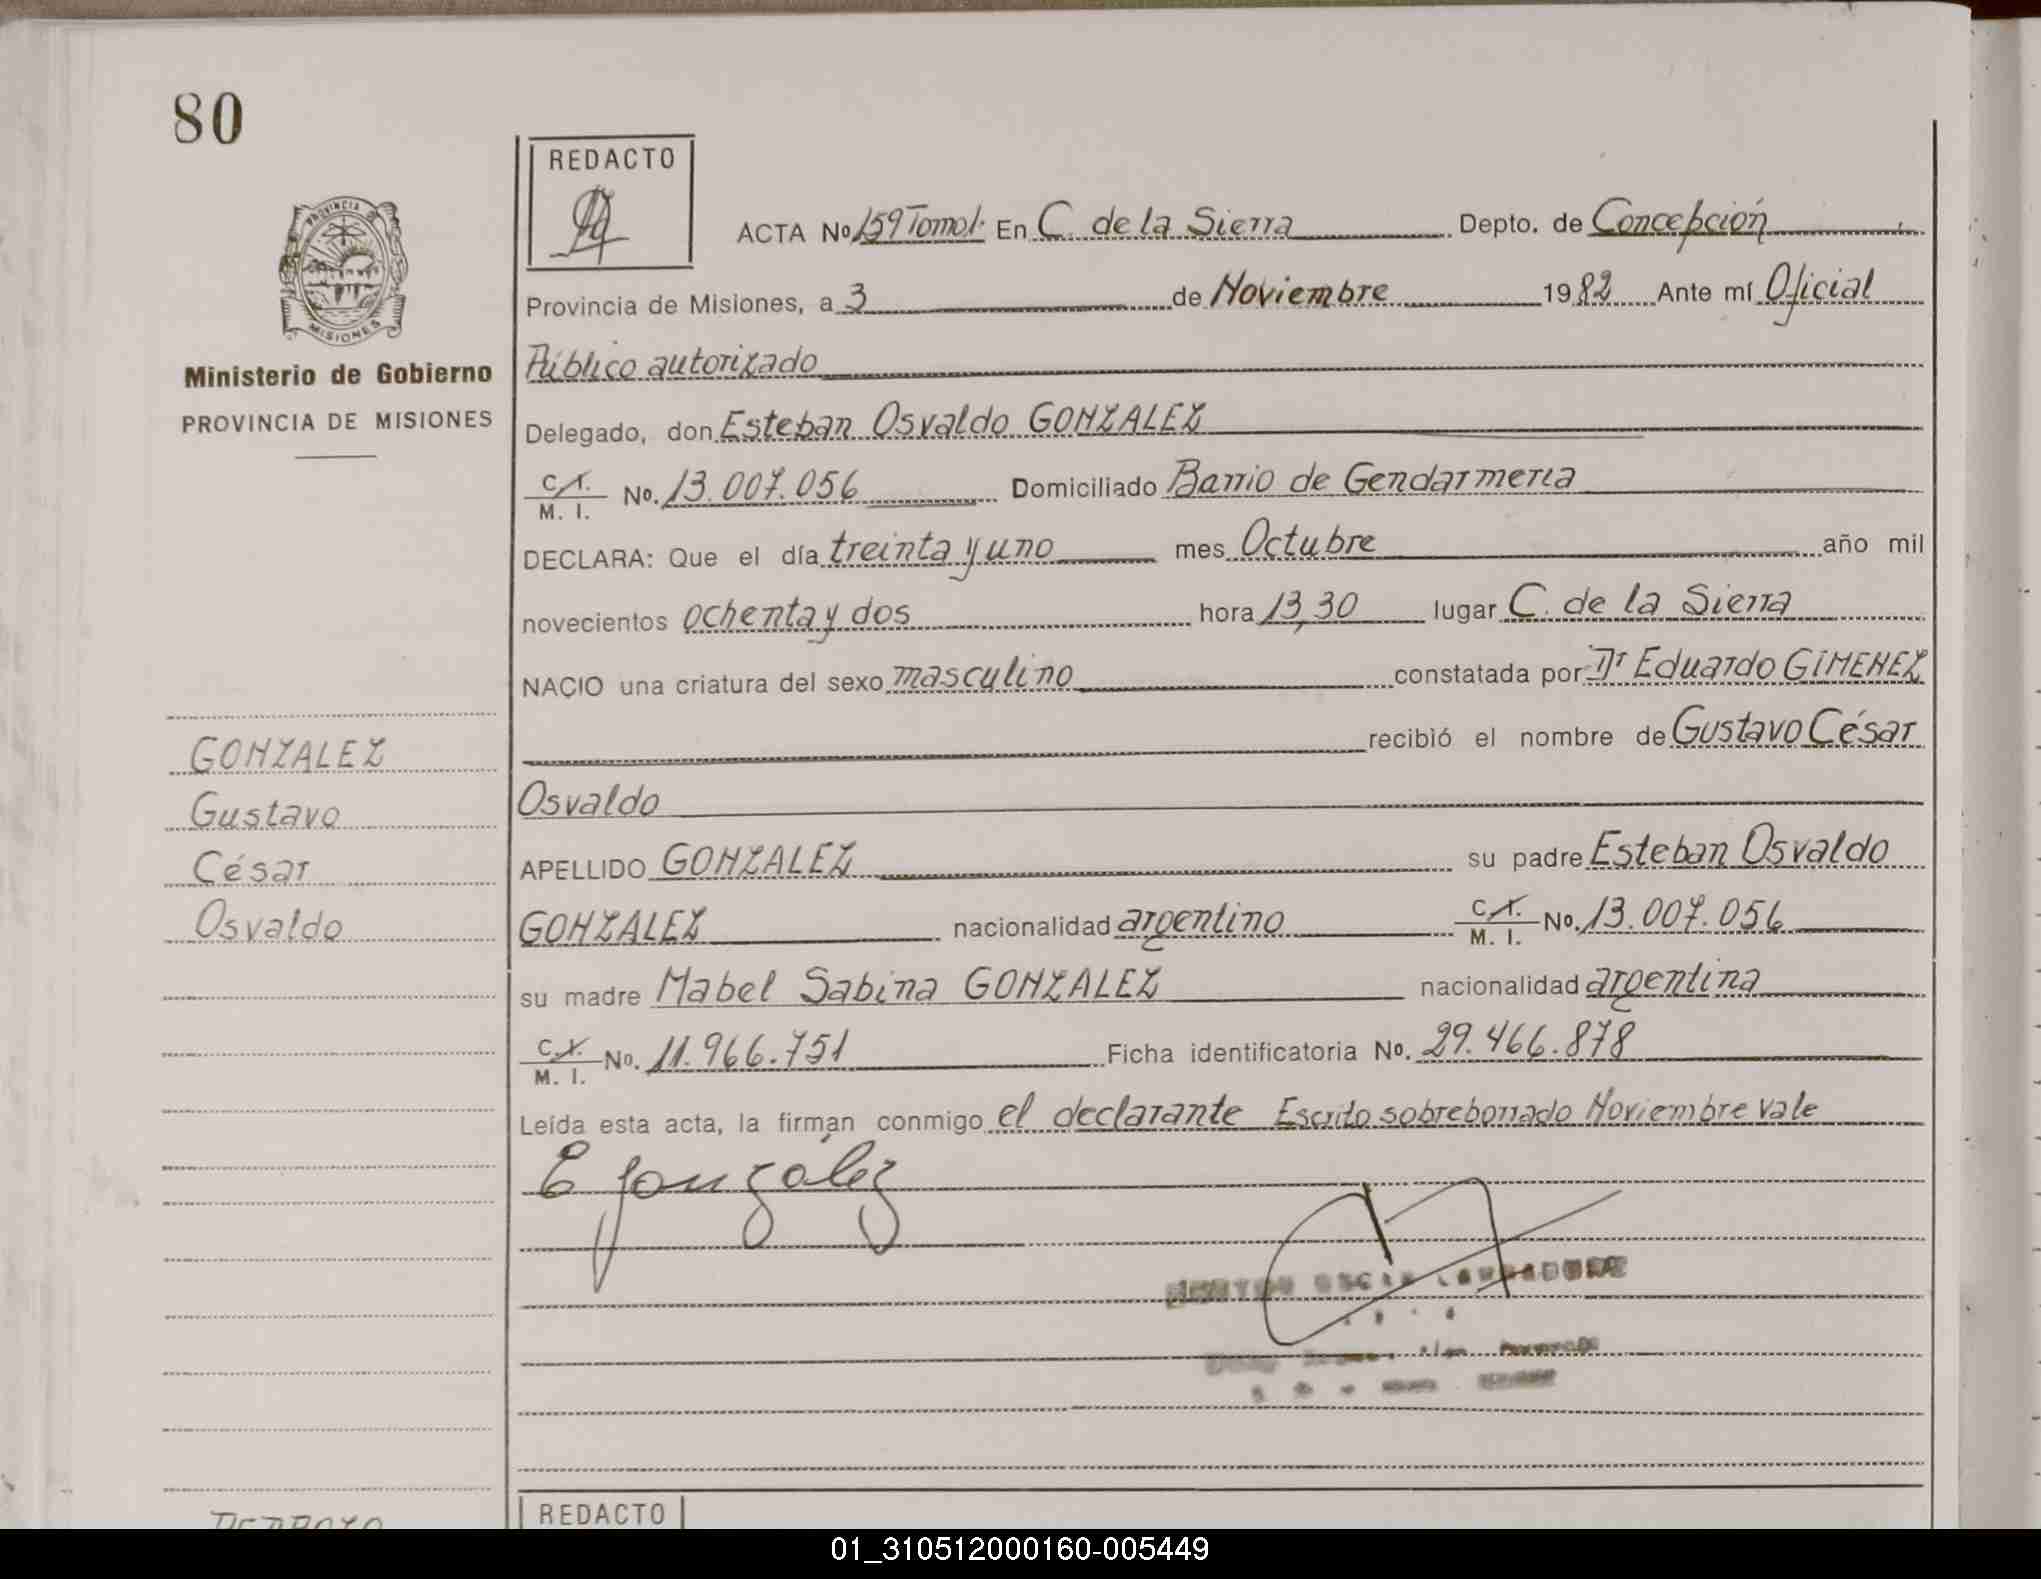 80
REDACTO
ACTA No 159 Tomo I. En C. de la Sierra Depto. de Concepción
Provincia de Misiones, a 3 de Noviembre 1982 Ante mí Oficial
PROVINCIA DE
MISIONES
Ministerio de Gobierno
PROVINCIA DE MISIONES
Público autorizado
Delegado, don Esteban Osvaldo GONZALEZ
C. I. / M. I. No. 13.007.056 Domiciliado Barrio de Gendarmeria
DECLARA: Que el día treinta y uno mes Octubre año mil
novecientos ochenta y dos hora 13,30 lugar C. de la Sierra
NACIO una criatura del sexo masculino constatada por Dr Eduardo GIMENEZ
recibió el nombre de Gustavo César
Osvaldo
APELLIDO GONZALEZ su padre Esteban Osvaldo
GONZALEZ nacionalidad argentino C. I. / M. I. No. 13.007.056
su madre Mabel Sabina GONZALEZ nacionalidad argentina
C. I. / M. I. No. 11.966.751 Ficha identificatoria No. 29.466.878
Leída esta acta, la firman conmigo el declarante Escrito sobreborrado Noviembre vale
E González
GONZALEZ
Gustavo
César
Osvaldo
REDACTO
01_310512000160-005449